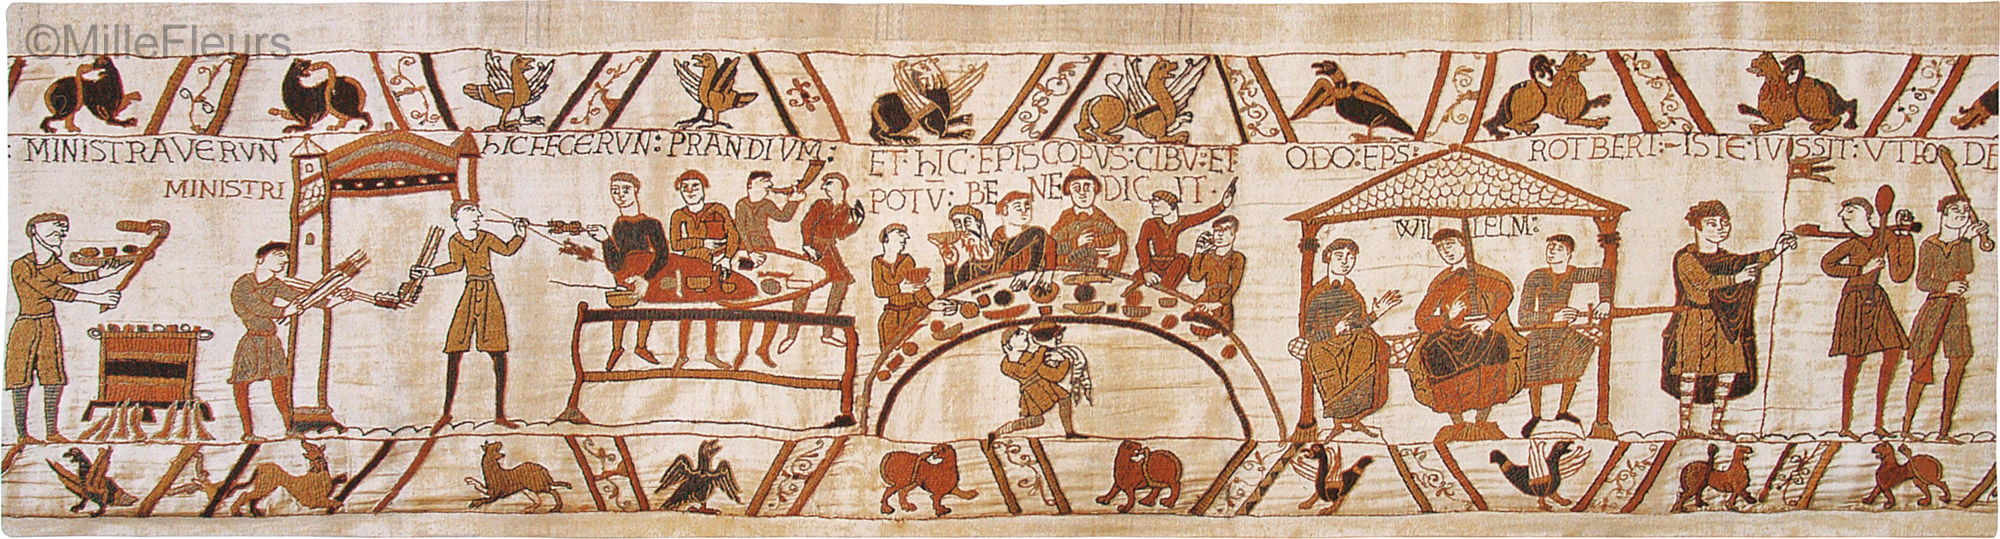 ©MilleFleurs
: MINISTRAVERVN
MINISTRI
hIC FECERVN: PRANDIVM:
ET· hIC· EPISCOPVS: CIBV: ET
POTV: BENEDICIT·
ODO: EPS:
WILLELM:
ROTBERT:- ISTE· IVSSIT: VT FO DE